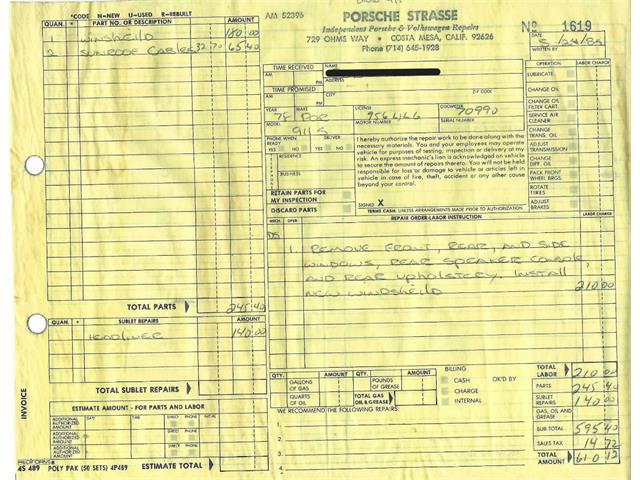 AM 52396
PORSCHE STRASSE
Independent Porsche & Volkswagen Repairs
729 OHMS WAY • COSTA MESA, CALIF. 92626
Phone (714) 645-1928
No 1619
DATE
WRITTEN BY
*CODE N—NEW U—USED R—REBUILT
QUAN. * PART NO. OR DESCRIPTION AMOUNT
1 WINDSHEILD 180 00
2 SUNROOF CABLES 32.70 65 40
TOTAL PARTS 245 40
QUAN. * SUBLET REPAIRS AMOUNT
HEADLINER 140 00
TOTAL SUBLET REPAIRS
ESTIMATE AMOUNT - FOR PARTS AND LABOR
ADDITIONAL AUTHORIZED AMOUNT DATE TIME DIRECT PHONE
ADDITIONAL AUTHORIZED AMOUNT DIRECT PHONE
ADDITIONAL AUTHORIZED AMOUNT DIRECT PHONE
4S 489 POLY PAK (50 SETS) 4P489 ESTIMATE TOTAL
INVOICE
TIME RECEIVED NAME
AM PM
TIME PROMISED CITY Z-P CODE
AM PM
YEAR MAKE LICENSE ODOMETER
78 POR 756 LLG 70990
MODEL MOTOR NUMBER SERIAL NUMBER
911 S
PHONE WHEN READY DELIVER
YES NO YES NO
RESIDENCE
BUSINESS
RETAIN PARTS FOR MY INSPECTION
DISCARD PARTS
I hereby authorize the repair work to be done along with the
necessary materials. You and your employees may operate
vehicle for purposes of testing, inspection or delivery at my
risk. An express mechanic's lien is acknowledged on vehicle
to secure the amount of repairs thereto. You will not be held
responsible for loss or damage to vehicle or articles left in
vehicle in case of fire, theft, accident or any other cause
beyond your control.
SIGNED X
TERMS CASH: UNLESS ARRANGEMENTS MADE PRIOR TO AUTHORIZATION
OPERATION LABOR CHARGE
LUBRICATE
CHANGE OIL
CHANGE OIL FILTER CART.
SERVICE AIR CLEANER
CHANGE TRANS. OIL
ADJUST TRANSMISSION
CHANGE DIFF. OIL
PACK FRONT WHEEL BRGS.
ROTATE TIRES
ADJUST BRAKES
MECH. OPER. REPAIR ORDER-LABOR INSTRUCTION LABOR CHARGE
1. REMOVE FRONT, REAR, AND SIDE
WINDOWS, REAR SPEAKER CONSOLE,
AND REAR UPHOLSTERY. INSTALL
NEW WINDSHEILD 210 00
QTY. QTY. BILLING
GALLONS OF GAS POUNDS OF GREASE CASH OK'D BY
QUARTS OF OIL TOTAL GAS OIL & GREASE CHARGE
INTERNAL
WE RECOMMEND THE FOLLOWING REPAIRS
1
2
3
4
TOTAL LABOR 210 00
PARTS 245 40
SUBLET REPAIRS 140 00
GAS, OIL AND GREASE
SUB TOTAL 595 40
SALES TAX 14 72
TOTAL AMOUNT 610 12